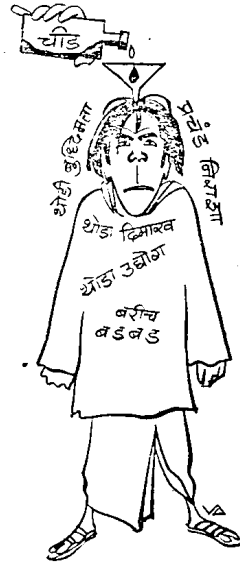 चीड
थोडी बुद्धिमत्ता
प्रचंड निराशा
थोडा दिमाख
थोडा उद्योग
बरीच
बडबड